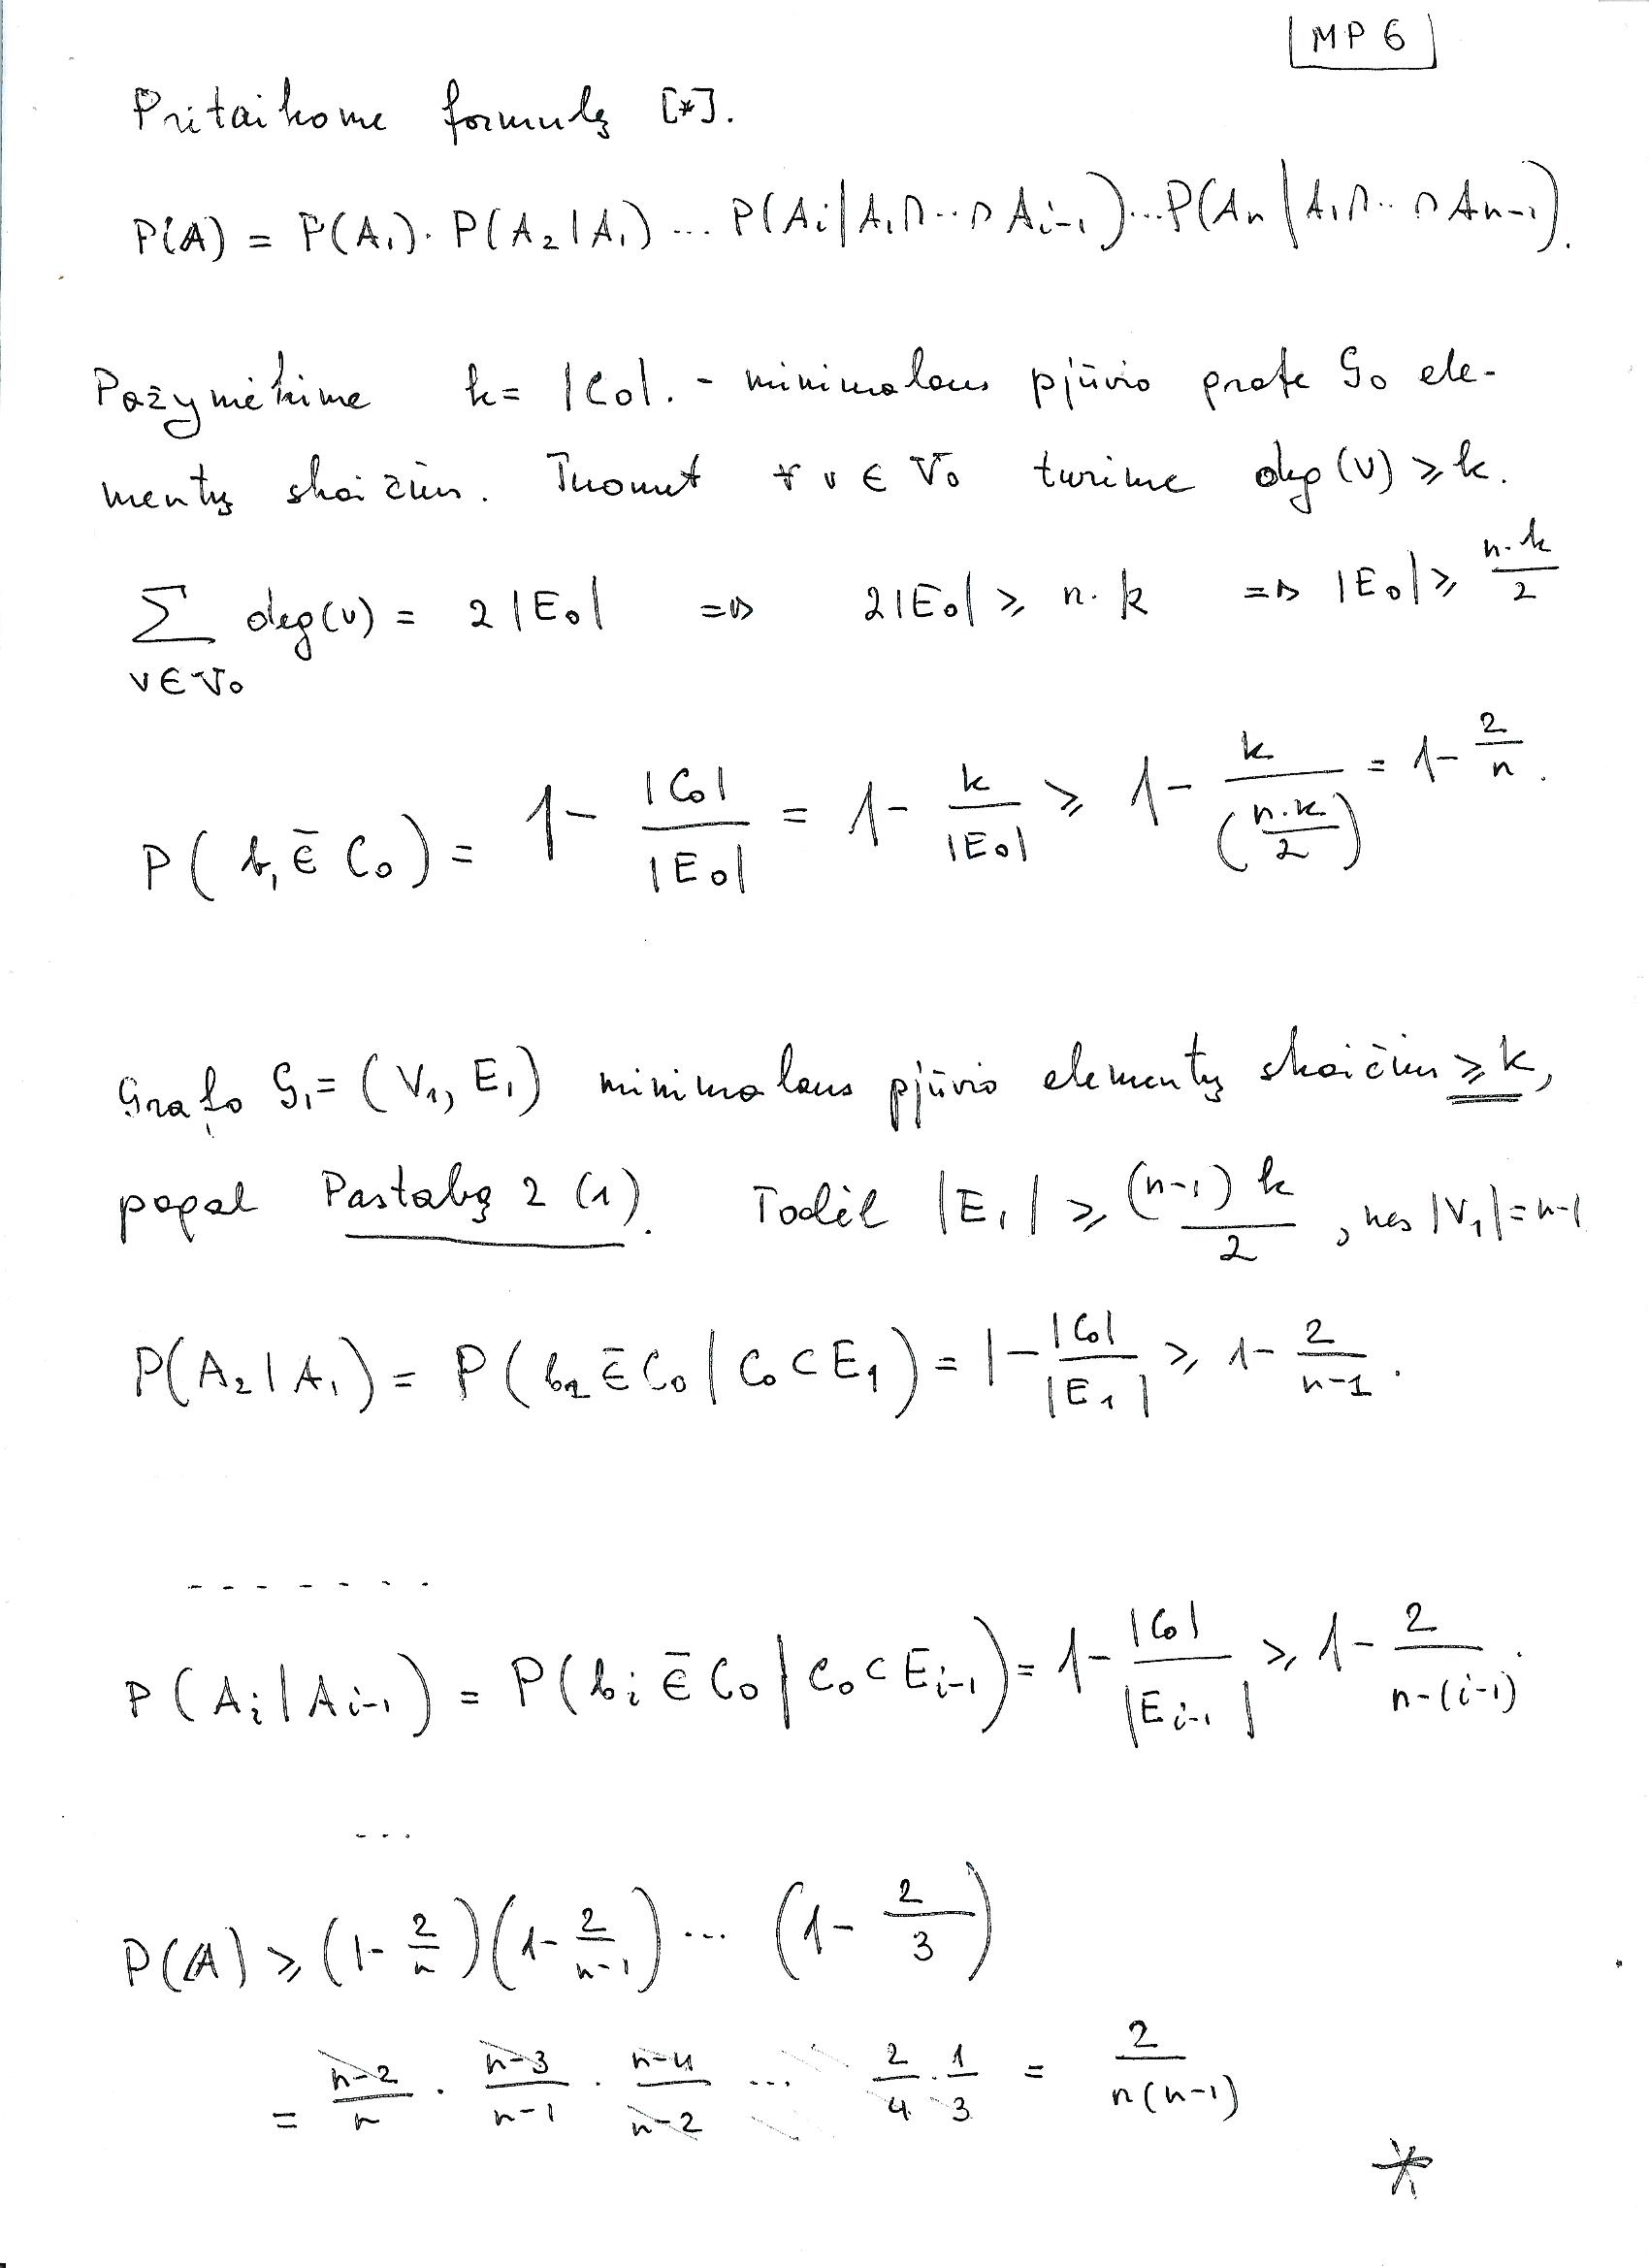 MP 6
Pritaikome formulę [*].
P(A) = P(A₁)·P(A₂|A₁) ... P(Aᵢ|A₁∩...∩Aᵢ₋₁)...P(Aₙ|A₁∩...∩Aₙ₋₁).
Pažymėkime k= |C₀|. - minimalaus pjūvio grafe G₀ ele-
mentų skaičius. Tuomet ∀ v ∈ V₀ turime deg(v) ≥ k.
∑_{v∈V₀} deg(v) = 2|E₀| => 2|E₀| ≥ n·k => |E₀| ≥ n·k/2
P(b₁ ∈̄ C₀) = 1 - |C₀|/|E₀| = 1 - k/|E₀| ≥ 1 - k/(n·k/2) = 1 - 2/n.
Grafo G₁=(V₁, E₁) minimalaus pjūvio elementų skaičius ≥ k,
pagal Pastabą 2 (1). Todėl |E₁| ≥ (n-1)k/2, nes |V₁|=n-1
P(A₂|A₁) = P(b₂ ∈̄ C₀ | C₀ ⊂ E₁) = 1 - |C₀|/|E₁| ≥ 1 - 2/(n-1).
- - - - - - -
P(Aᵢ|Aᵢ₋₁) = P(bᵢ ∈̄ C₀ | C₀ ⊂ Eᵢ₋₁) = 1 - |C₀|/|Eᵢ₋₁| ≥ 1 - 2/(n-(i-1)).
...
P(A) ≥ (1 - 2/n)(1 - 2/(n-1)) ... (1 - 2/3)
= (n-2)/n · (n-3)/(n-1) · (n-4)/(n-2) ... 2/4 · 1/3 = 2/(n(n-1))
*